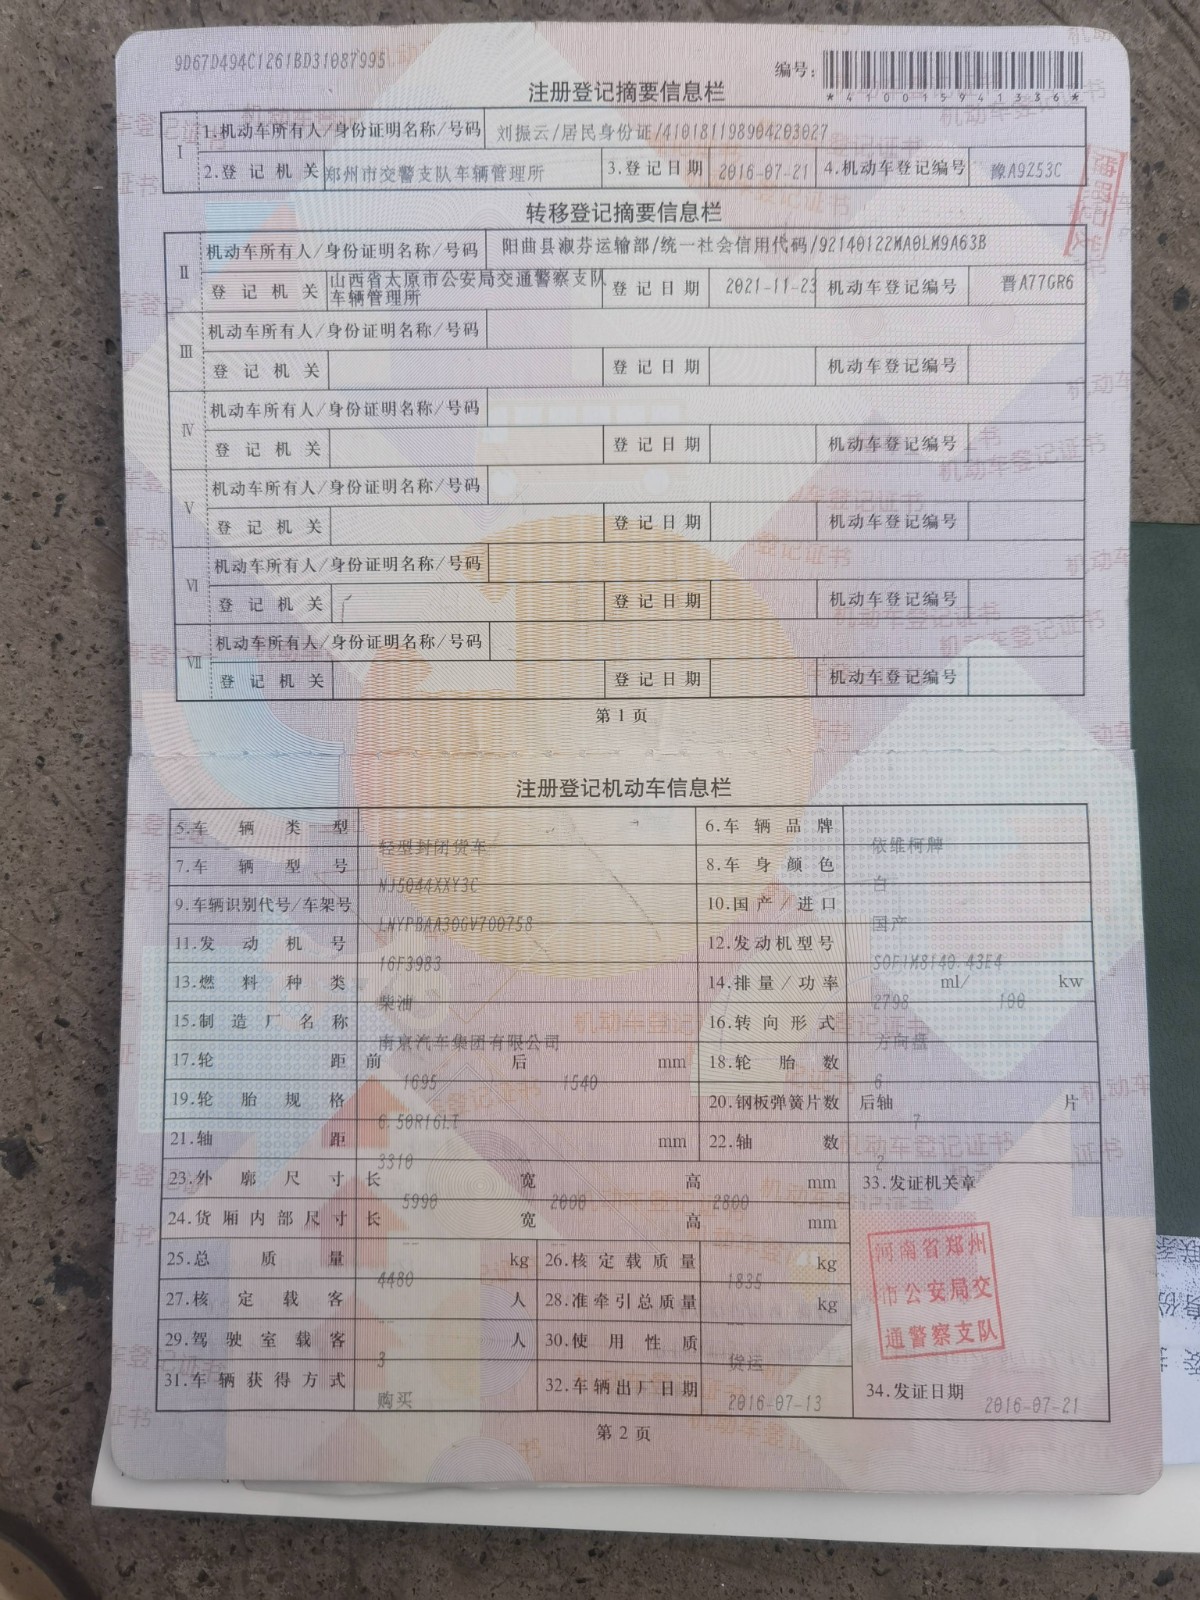 9D67D494C1261BD31087995
编号:
*410015941336*
注册登记摘要信息栏
Ⅰ 1.机动车所有人/身份证明名称/号码 刘振云/居民身份证/410181198904203027
2.登记机关 郑州市交警支队车辆管理所 3.登记日期 2016-07-21 4.机动车登记编号 豫A9Z53C
转移登记摘要信息栏
Ⅱ 机动车所有人/身份证明名称/号码 阳曲县淑芬运输部/统一社会信用代码/92140122MA0LM9A63B
登记机关 山西省太原市公安局交通警察支队车辆管理所 登记日期 2021-11-23 机动车登记编号 晋A77GR6
Ⅲ 机动车所有人/身份证明名称/号码
登记机关 登记日期 机动车登记编号
Ⅳ 机动车所有人/身份证明名称/号码
登记机关 登记日期 机动车登记编号
Ⅴ 机动车所有人/身份证明名称/号码
登记机关 登记日期 机动车登记编号
Ⅵ 机动车所有人/身份证明名称/号码
登记机关 登记日期 机动车登记编号
Ⅶ 机动车所有人/身份证明名称/号码
登记机关 登记日期 机动车登记编号
第1页
注册登记机动车信息栏
5.车辆类型 轻型封闭货车 6.车辆品牌 依维柯牌
7.车辆型号 NJ5044XXY3C 8.车身颜色 白
9.车辆识别代号/车架号 LNYPBAA30GV700758 10.国产/进口 国产
11.发动机号 16F3983 12.发动机型号 SOFIM8140.43E4
13.燃料种类 柴油 14.排量/功率 2798 ml/ 100 kw
15.制造厂名称 南京汽车集团有限公司 16.转向形式 方向盘
17.轮距 前 1695 后 1540 mm 18.轮胎数 6
19.轮胎规格 6.50R16LT 20.钢板弹簧片数 后轴 7 片
21.轴距 3310 mm 22.轴数 2
23.外廓尺寸 长 5990 宽 2000 高 2800 mm 33.发证机关章
24.货厢内部尺寸 长 -- 宽 -- 高 -- mm
河南省郑州
市公安局交
通警察支队
25.总质量 4480 kg 26.核定载质量 1835 kg
27.核定载客 -- 人 28.准牵引总质量 -- kg
29.驾驶室载客 3 人 30.使用性质 货运
31.车辆获得方式 购买 32.车辆出厂日期 2016-07-13 34.发证日期 2016-07-21
第2页